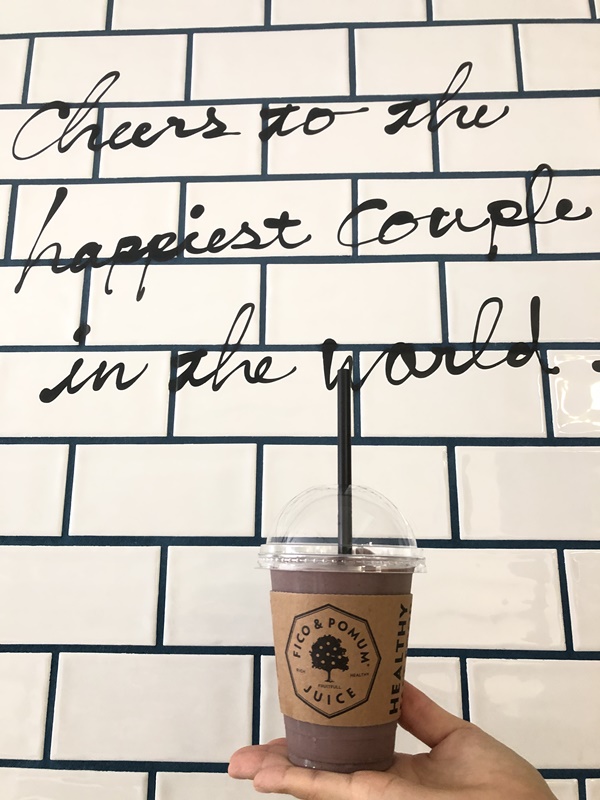 Cheers to the
happiest couple
in the world.
FICO & POMUM
JUICE
HEALTHY